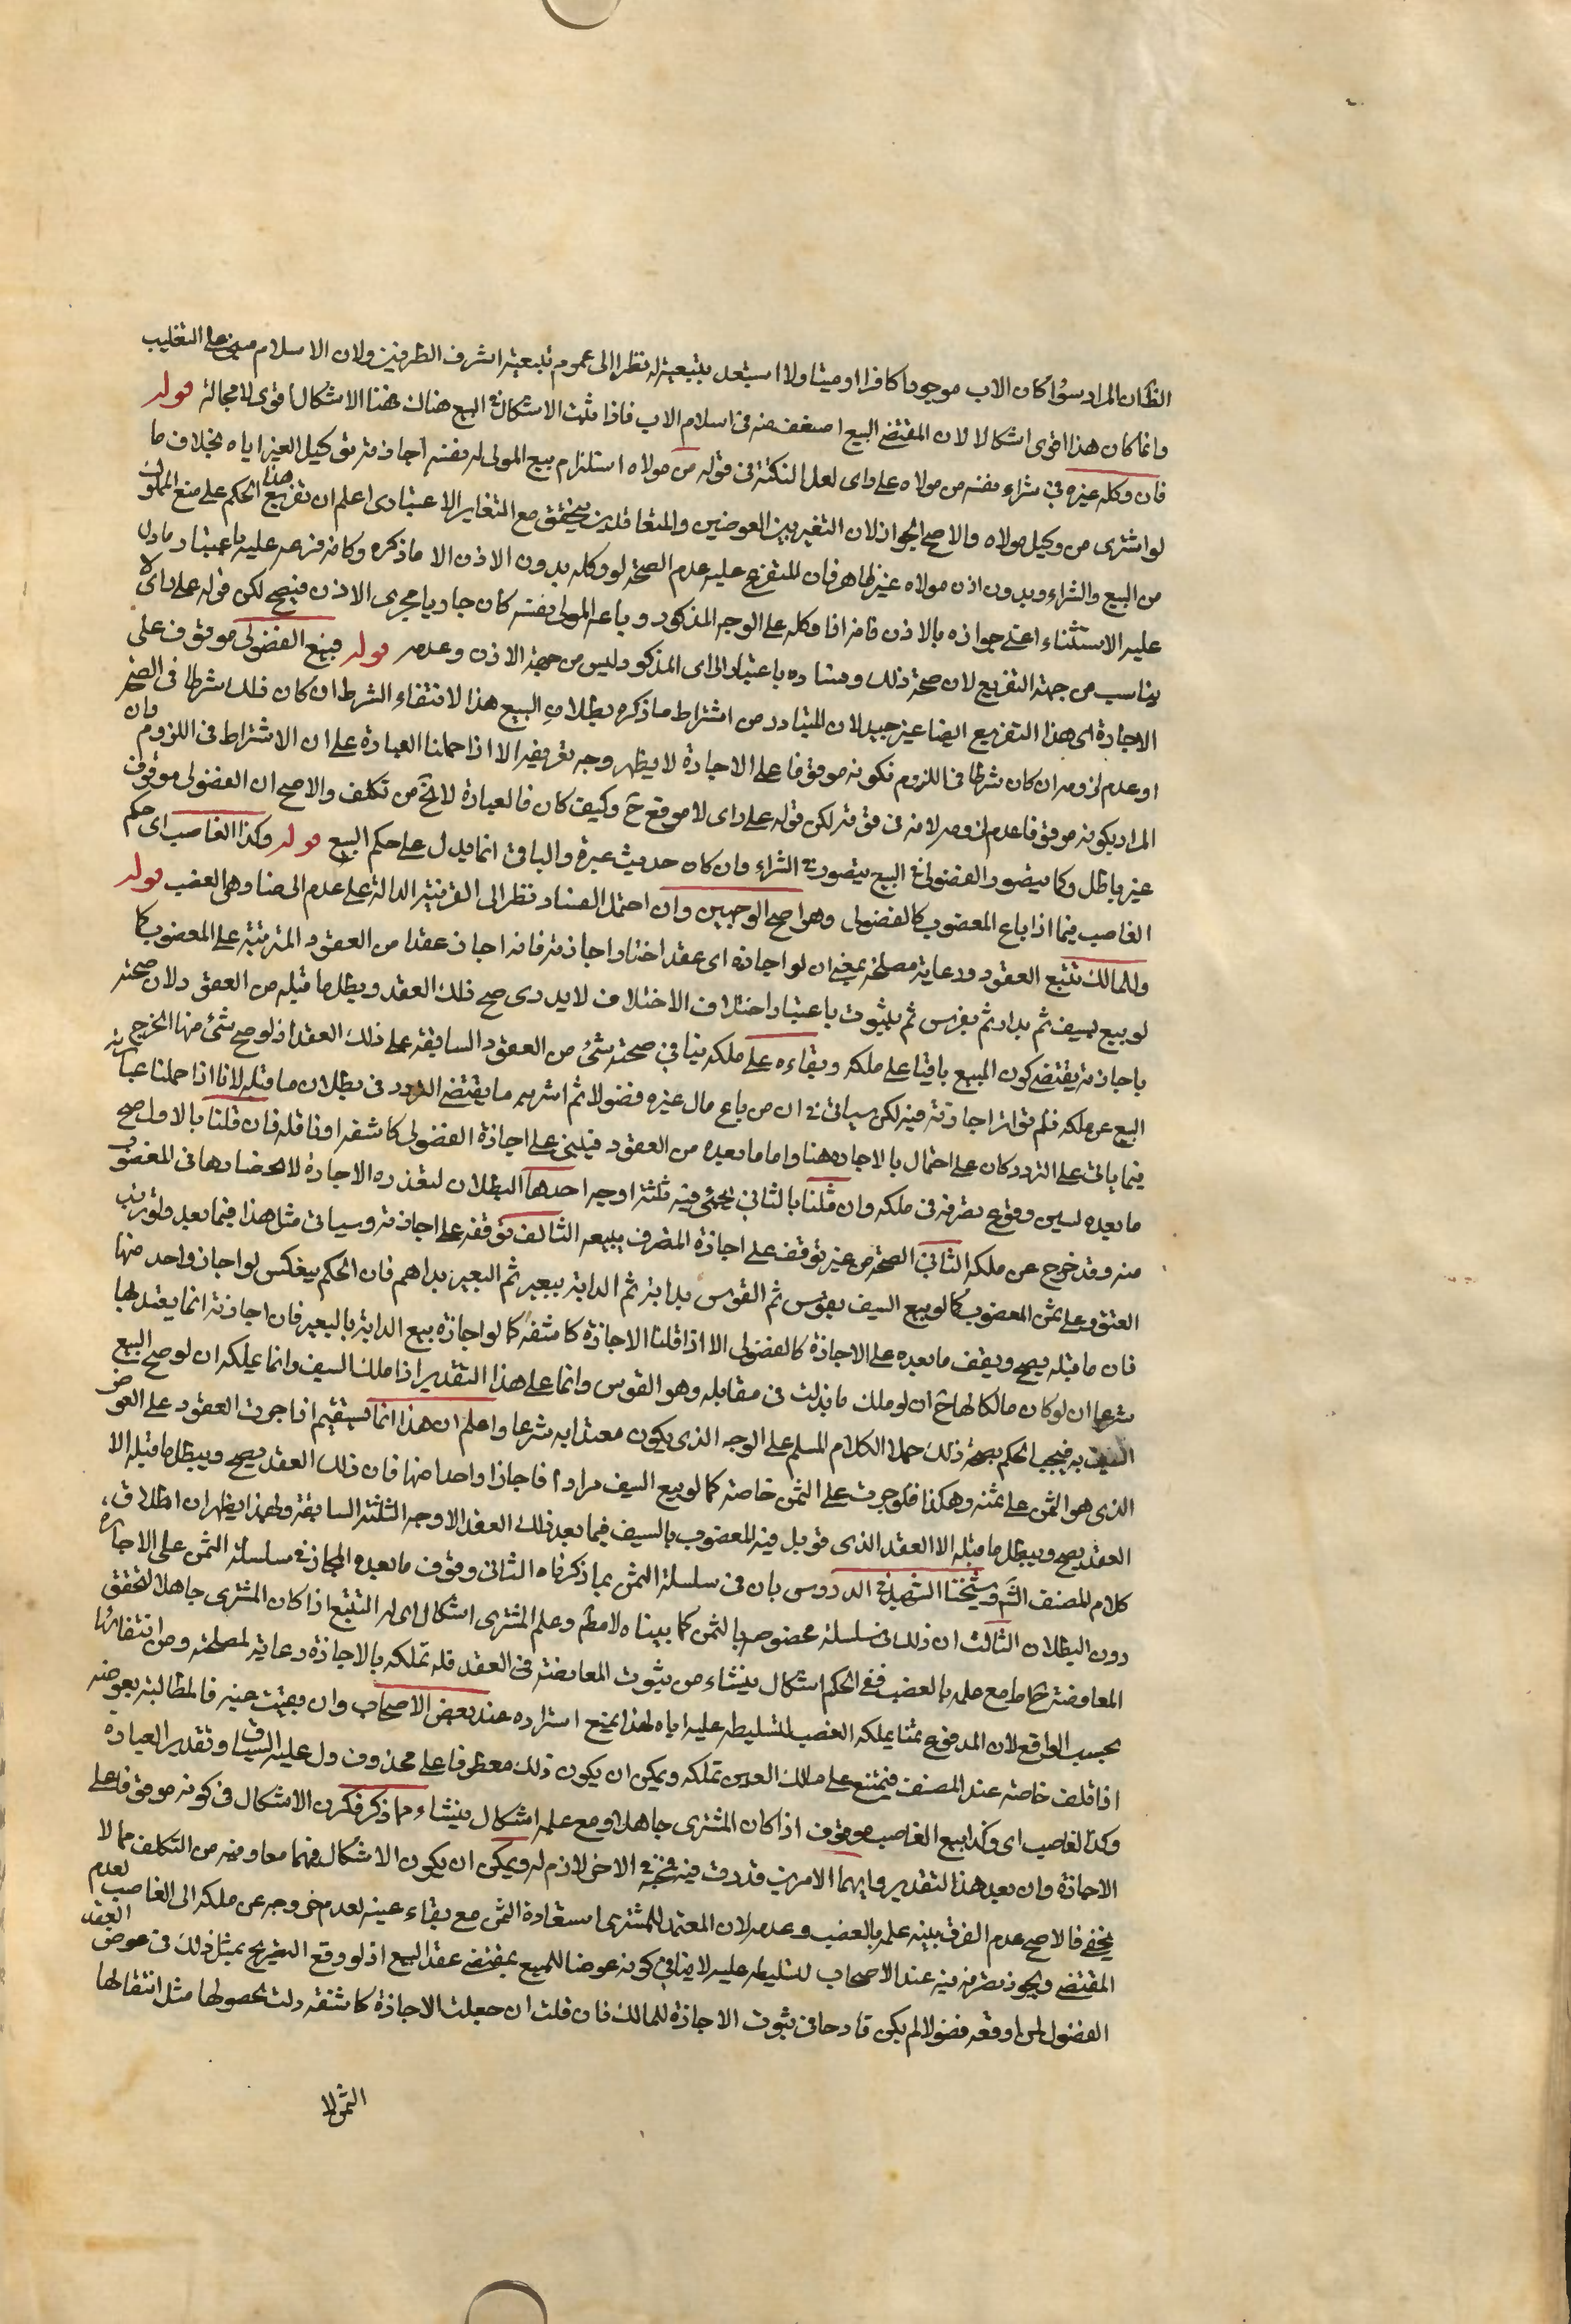 الظ ان المراد سواء كان الاب موجودا كافرا او ميتا ولا استبعد بتبعيته له نظرا الى عموم تبعيته اشرف الطرفين ولان الاسلام مبنى على التغليب
وانما كان هذا اقوى اشكالا لان المقتضى البيع اضعف منه فى اسلام الاب فاذا ثبت الاشكال فى البيع هناك فهنا الاشكال اقوى لا محالة قوله
فان وكله غيره فى شراء نفسه من مولاه على راى لعل النكتة فى قوله من مولاه استلزام بيع المولى له نفسه اجازته توكيل الغير اياه بخلاف ما
لو اشترى من وكيل مولاه والاصح الجواز لان التغير بين العوضين والمتعاقدين يتحقق مع التغاير الاعتبارى اعلم ان تفريع هذا الحكم على منع المملوك
من البيع والشراء وبدون اذن مولاه غير ظاهر فان المتفرع عليه عدم الصحة لو وكله بدون الاذن الا ما ذكره وكانه فرعه عليه باعتبار ما دل
عليه الاستثناء اعنى جوازه بالاذن فانه اذا وكله على الوجه المذكور وباعه المولى نفسه كان جاريا مجرى الاذن فيصح لكن قوله على راى لا
يناسب من جهة التفريع لان صحة ذلك وفساده باعتبار الراى المذكور ليس من جهة الاذن وعدمه قوله فبيع الفضولى موقوف على
الاجازة اى هذا التفريع ايضا غير جيد لان المتبادر من اشتراط ما ذكره بطلان البيع هذا لانتفاء الشرط ان كان ذلك شرطا فى الصحة
او عدم لزومه ان كان شرطا فى اللزوم فكونه موقوفا على الاجازة لا يظهر وجه تفريعه الا اذا حملنا العبارة على ان الاشتراط فى اللزوم وان
المراد بكونه موقوفا عدم لزومه لانه فى قوته لكن قوله على راى لا موقع ح وكيف كان فالعبارة لا تخ من تكلف والاصح ان الفضولى موقوف
غير باطل وكما يتصور الفضولى فى البيع يتصور فى الشراء وان كان حديث عروة والباقى انما يدل على حكم البيع قوله وكذا الغاصب اى حكم
الغاصب فيما اذا باع المغصوب كالفضولى وهو اصح الوجهين وان احتمل الفساد نظرا الى القرنية الدالة على عدم الرضا وهى الغصب قوله
وللمالك تتبع العقود ورعاية مصلحته يعنى ان لو اجازه اى عقد اختار اجازته فانه اجاز عقدا من العقود المترتبة على المغصوب كما
لو بيع بسيف ثم بدار ثم بفرس ثم بثوب باعتبار اختلاف الاختلاف لا يدرى صح ذلك العقد وبطل ما قبله من العقود لان صحته
باجازته يقتضى كون المبيع باقيا على ملكه وبقاءه على ملكه ينافى صحة شئ من العقود السابقة على ذلك العقد اذ لو صح شئ منها لخرج
البيع عن ملكه فلم تؤثر اجازته فيه لكن سياتى فى ان من باع مال غيره فضولا ثم اشتريه ما يقتضى التردد فى بطلان ما قبله لانا اذا حملنا عبارته
فيما ياتى على التردد كان على احتمال بالاجازة هنا واما ما بعده من العقود فيبنى على اجازة الفضولى كاشفه او ناقله فان قلنا بالاول صح
ما بعده لسبق وقوع تصرفه فى ملكه وان قلنا بالثانى يجئى فيه ثلثة اوجه احدها البطلان لتعذره الاجازة لانحصارها فى المغصوب
منه وقد خرج عن ملكه الثانى الصحة من غير توقف على اجازة المتصرف ببيعه الثالث توقفه على اجازته وسياتى مثل هذا فيما بعد ولو رتب
العقود على ثمن المغصوب كما لو بيع السيف بقوس ثم القوس بدابة ثم الدابة ببعير ثم البعير بدراهم فان الحكم ينعكس لو اجاز واحد منها
فان ما قبله يصح ويقف ما بعده على الاجازة كالفضولى الا اذا قلنا الاجازة كاشفه كما لو اجازه بيع الدابة بالبعير فان اجازته انما يعتد بها
شرعا ان لو كان مالكا لها ح ان لو ملك ما بذلت فى مقابله وهو القوس وانما على هذا التقدير اذا ملك السيف وانما يملكه ان لو صح البيع
السيف به فيجب الحكم بصحة ذلك حملا الكلام المسلم على الوجه الذى يكون معتدا به شرعا واعلم ان هذا انما يستقيم اذا جرت العقود على العوض
الذى هو الثمن على ثمنه وهكذا فلو جرت على الثمن خاصة كما لو بيع السيف مرارا فاجاز واحدا منها فان ذلك العقد يصح ويبطل ما قبله الا
العقد يصح ويبطل ما قبله الا العقد الذى قوبل فيه المغصوب بالسيف فيما بعد ذلك العقد الاوجه الثلثة السابقة وبهذا يظهر ان اطلاق
كلام المصنف الش وشيخنا الشهيد فى الدروس بان فى سلسلة الثمن بما ذكرناه الثانى وقوف ما بعده المجاز فى سلسلة الثمن على الاجازة
دون البطلان الثالث ان ذلك فى سلسلة مخصوصه بالثمن كما بيناه لا مط وعلم المشترى اشكال اى له التتبع اذا كان المشترى جاهلا لتحقق
المعاوضة ح اما مع علمه بالغصب ففى الحكم اشكال ينشاء من ثبوت المعاوضة فى العقد فله تملكه بالاجازة رعاية لمصلحته ومن انتفائها
بحسب الواقع لان المدفوع ثمنا يملكه الغصب لتسليطه عليه اياه لهذا يمنع استرداده عند بعض الاصحاب وان بقيت عينه فالمطالبة بعوضه
اذا تلف خاصة عند المصنف فيمتنع على مالك العين تملكه ويمكن ان يكون ذلك معطوفا على محذوف دل عليه السياق وتقدير العبارة
وكذا الغاصب اى وكذا بيع الغاصب موقوف اذا كان المشترى جاهلا ومع علمه اشكال ينشاء مما ذكر فكون الاشكال فى كونه موقوفا على
الاجازة وان بعد هذا التقدير وايهما الامرين قدرت فيه الاخر لازم له ويمكن ان يكون الاشكال فيهما معا وفيه من التكلف مما لا
يخفى فالاصح عدم الفرق بينه علمه بالغصب وعدمه لان المعتمد للمشترى استعادة الثمن مع بقاء عينه لعدم خروجه عن ملكه الى الغاصب لعدم
المقتضى ويجوز تصرفه فيه عند الاصحاب لتسليطه عليه لا ينافى كونه عوضا للمبيع بمقتضى عقد البيع اذ لو وقع التصريح بمثل ذلك فى عوض العقد
الفضول لمن اوقعه فضولا لم يكن قادحا فى ثبوت الاجازة للمالك فان قلت ان جعلت الاجازة كاشفة دلت بحصولها مثل انتقالها
الثمن لا